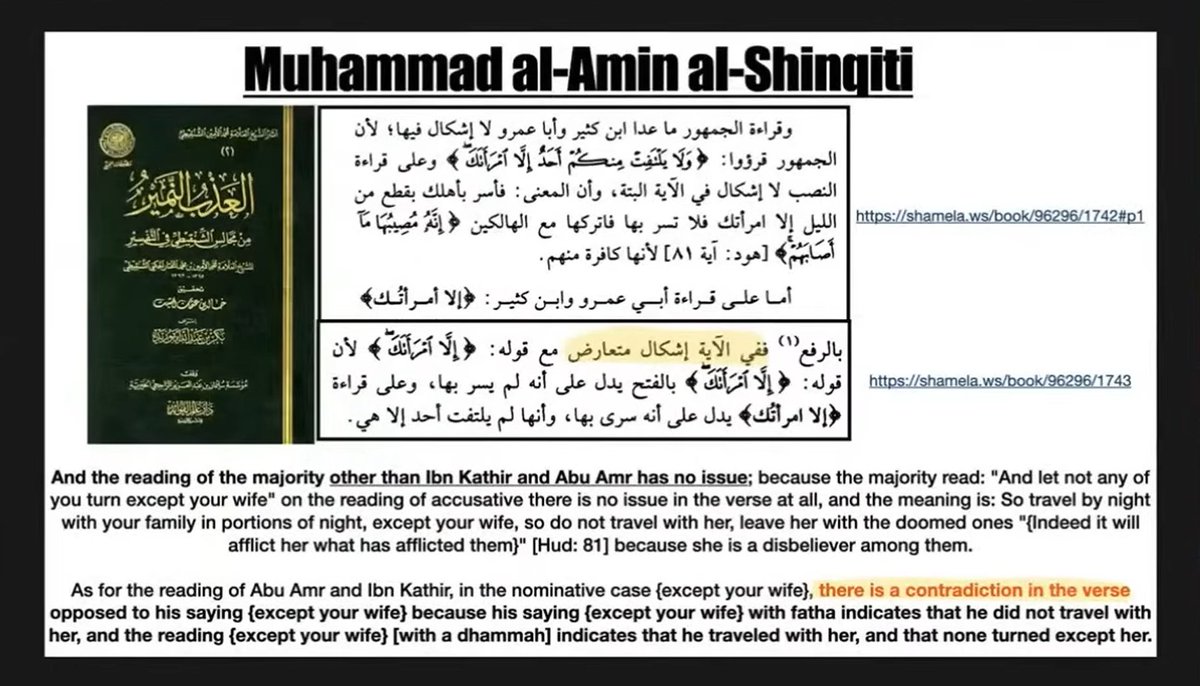 Muhammad al-Amin al-Shinqiti
العذب النمير
من مجالس الشنقيطي في التفسير
وقراءة الجمهور ما عدا ابن كثير وأبا عمرو لا إشكال فيها؛ لأن
الجمهور قرؤوا: ﴿وَلَا يَلْتَفِتْ مِنكُمْ أَحَدٌ إِلَّا ٱمْرَأَتَكَ ۖ﴾ وعلى قراءة
النصب لا إشكال في الآية البتة، وأن المعنى: فأسر بأهلك بقطع من
الليل إلا امرأتك فلا تسر بها فاتركها مع الهالكين ﴿إِنَّهُ مُصِيبُهَا مَآ
أَصَابَهُمْ ۚ﴾ [هود: آية ٨١] لأنها كافرة منهم.
أما على قراءة أبي عمرو وابن كثير: ﴿إلا أمرأتُك﴾
https://shamela.ws/book/96296/1742#p1
بالرفع(١) ففي الآية إشكال متعارض مع قوله: ﴿إِلَّا ٱمْرَأَتَكَ ۖ﴾ لأن
قوله: ﴿إِلَّا ٱمْرَأَتَكَ ۖ﴾ بالفتح يدل على أنه لم يسر بها، وعلى قراءة
﴿إلا امرأتُك﴾ يدل على أنه سرى بها، وأنها لم يلتفت أحد إلا هي.
https://shamela.ws/book/96296/1743
And the reading of the majority other than Ibn Kathir and Abu Amr has no issue; because the majority read: "And let not any of
you turn except your wife" on the reading of accusative there is no issue in the verse at all, and the meaning is: So travel by night
with your family in portions of night, except your wife, so do not travel with her, leave her with the doomed ones "{Indeed it will
afflict her what has afflicted them}" [Hud: 81] because she is a disbeliever among them.
As for the reading of Abu Amr and Ibn Kathir, in the nominative case {except your wife}, there is a contradiction in the verse
opposed to his saying {except your wife} because his saying {except your wife} with fatha indicates that he did not travel with
her, and the reading {except your wife} [with a dhammah] indicates that he traveled with her, and that none turned except her.